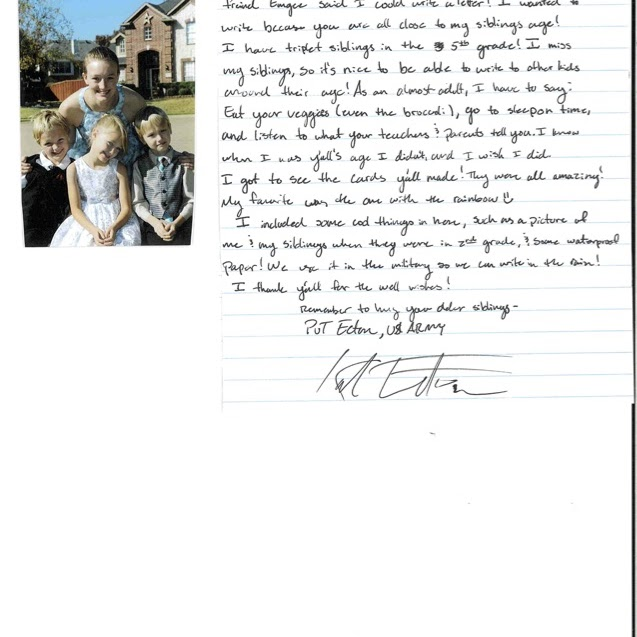 friend Emgee said I could write a letter! I wanted to
write because you are all close to my siblings age!
I have triplet siblings in the 5th grade! I miss
my siblings, so it's nice to be able to write to other kids
around their age! As an almost adult, I have to say:
Eat your veggies (even the brocoli), go to sleep on time,
and listen to what your teachers & parents tell you. I know
when I was y'all's age I didn't, and I wish I did.
I got to see the cards y'all made! They were all amazing!
My favorite was the one with the rainbow
I included some cool things in here, such as a picture of
me & my siblings when they were in 2nd grade, & some waterproof
paper! We use it in the military so we can write in the rain!
I thank y'all for the well wishes!
Remember to hug your older siblings-
PVT Ecton, US ARMY